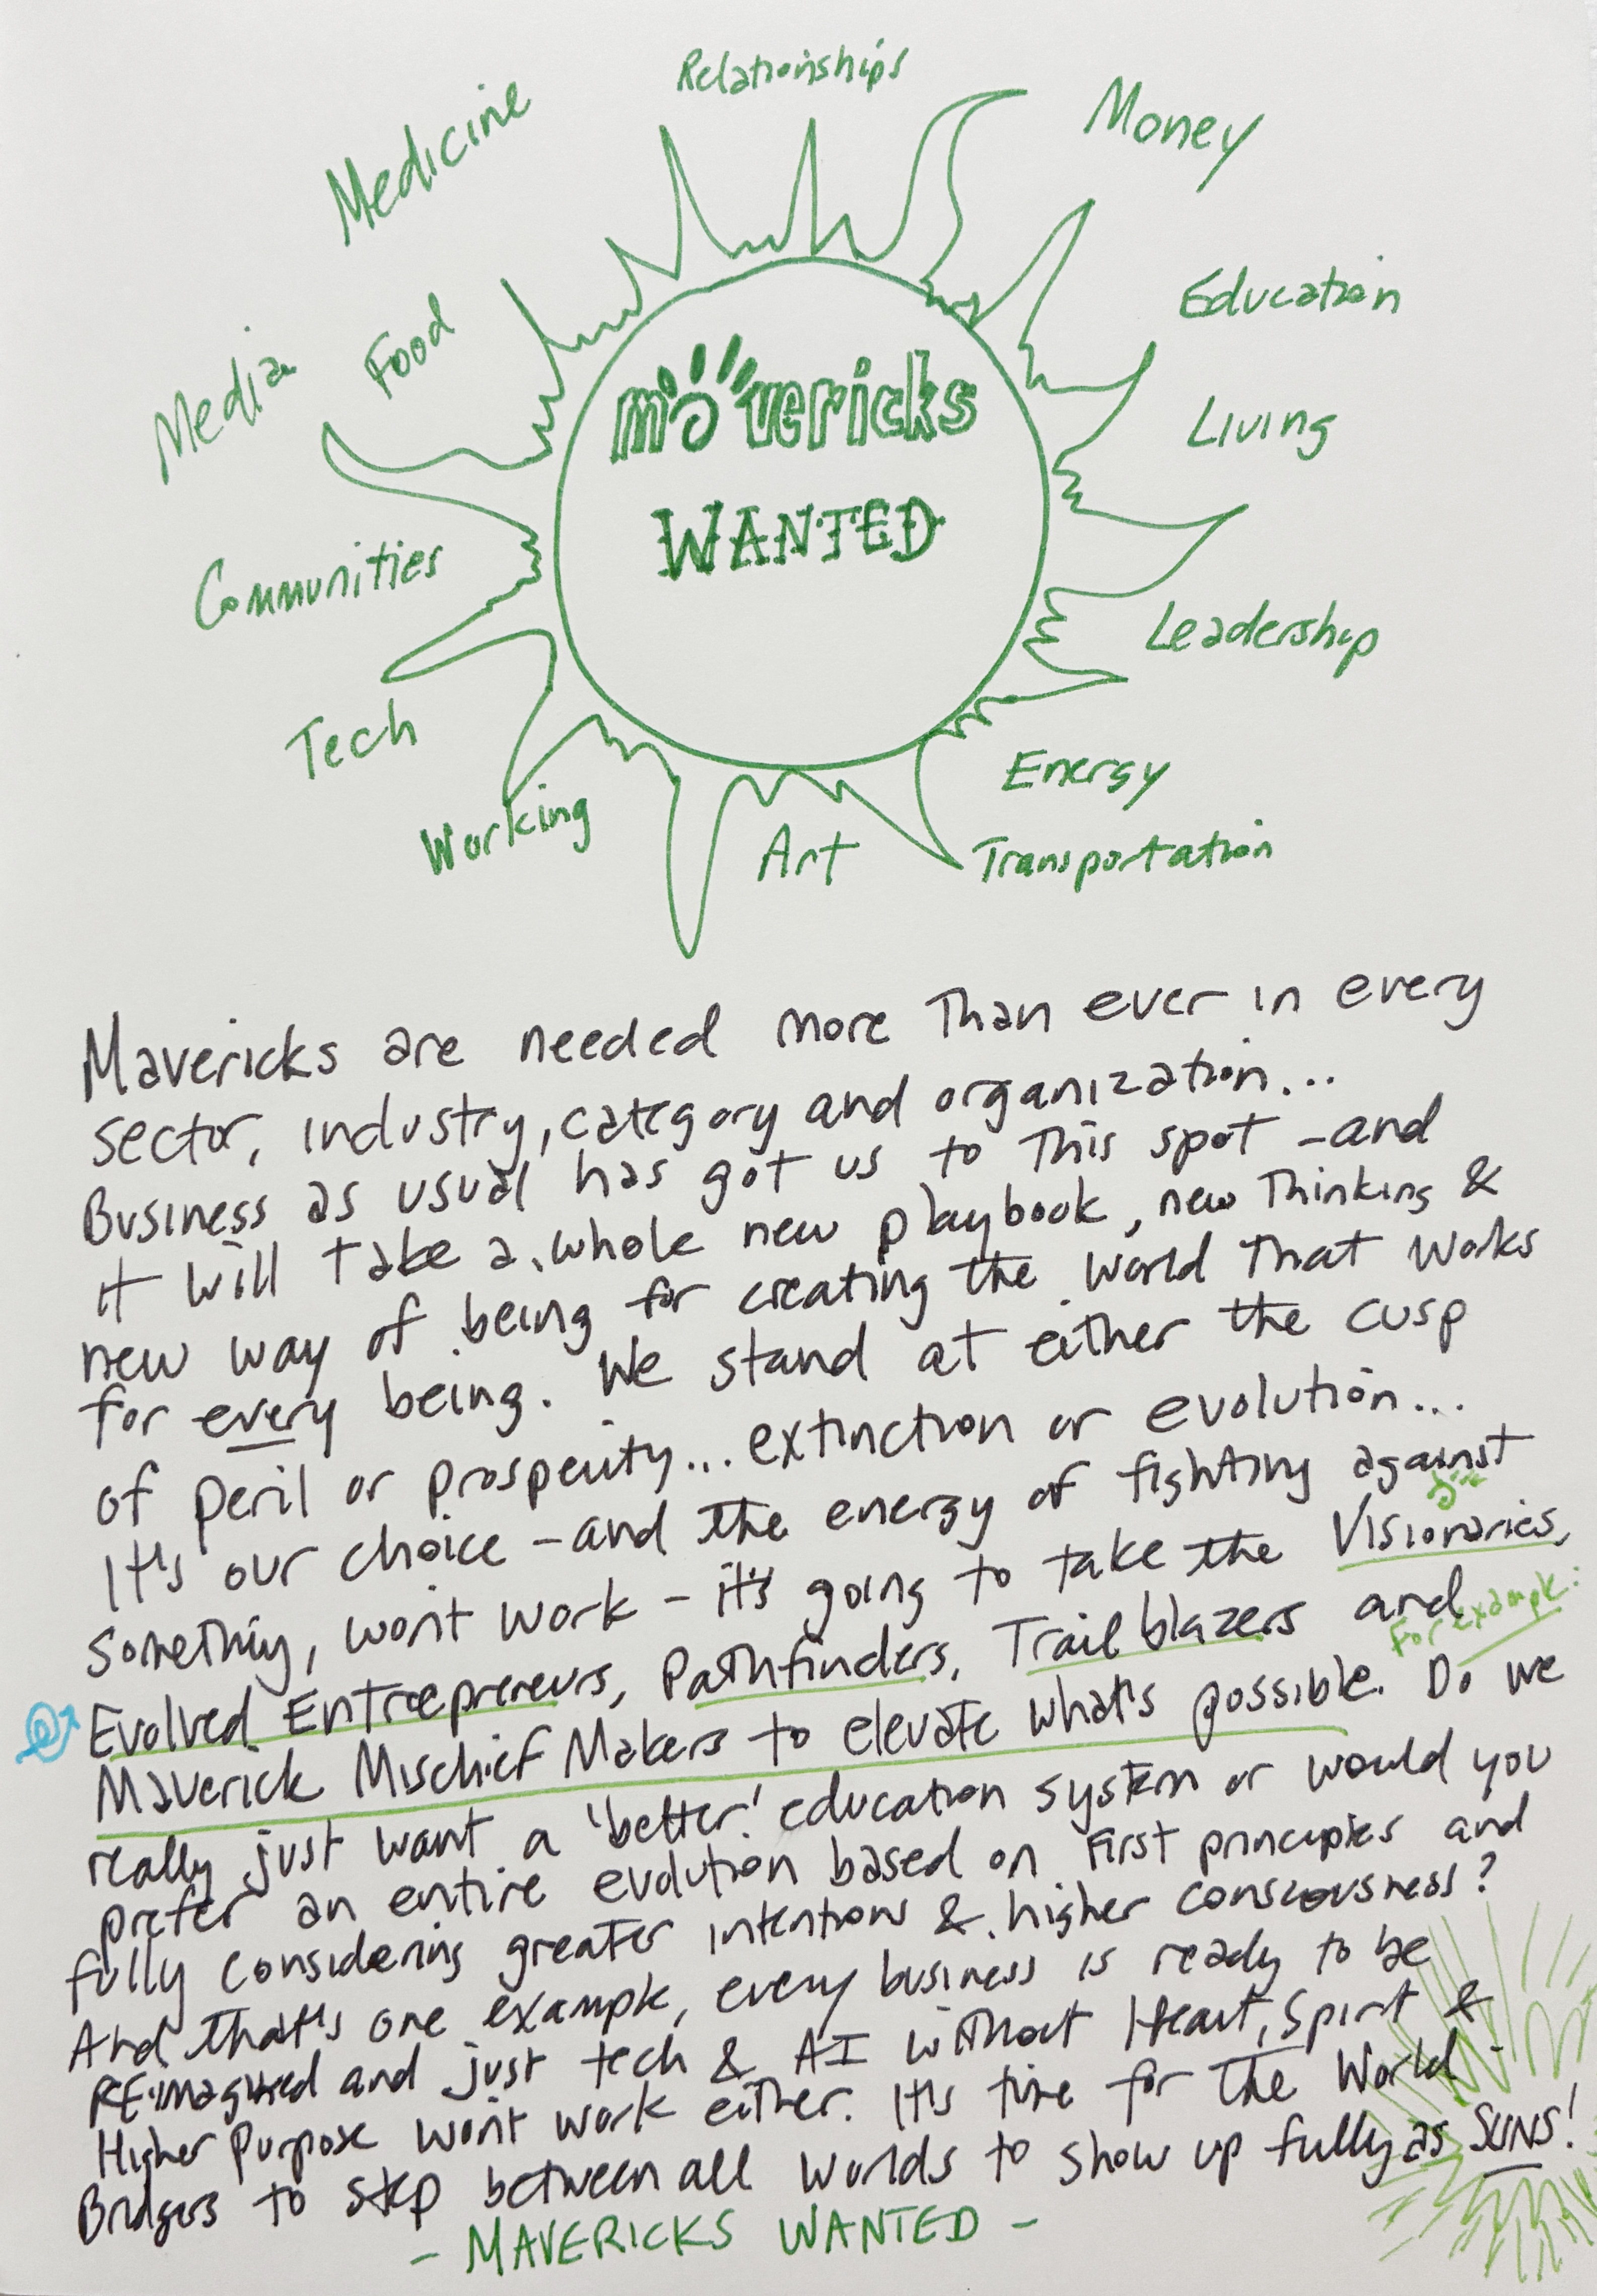 Relationships
Medicine
Money
Education
Food
Media
Living
mavericks
WANTED
Communities
Leadership
Tech
Energy
Working
Art
Transportation
Mavericks are needed more than ever in every
sector, industry, category and organization...
Business as usual has got us to this spot - and
it will take a whole new playbook, new thinking &
new way of being for creating the world that works
for every being. We stand at either the cusp
of peril or prosperity... extinction or evolution...
It's our choice - and the energy of fighting against
something, won't work - it's going to take the Visionaries,
Evolved Entrepreneurs, Pathfinders, Trailblazers and
For example:
Maverick Mischief Makers to elevate what's possible. Do we
really just want a 'better' education system or would you
prefer an entire evolution based on first principles and
fully considering greater intentions & higher consciousness?
And that's one example, every business is ready to be
RE-imagined and just tech & AI without Heart, Spirit &
Higher Purpose won't work either. It's time for the World -
Bridgers to step between all worlds to show up fully as SUNS!
- MAVERICKS WANTED -